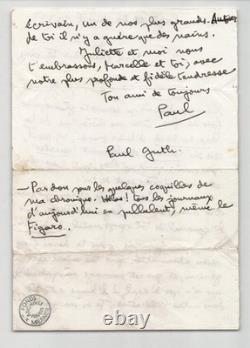 écrivain, un de nos plus grands. Autour
de toi il n'y a guère que des nains.
Juliette et moi nous
t'embrassons, Marcelle et toi, avec
notre plus profonde et fidèle tendresse
Ton ami de toujours
Paul
Paul Guth.
— Pardon pour les quelques coquilles de
ma chronique. Hélas ! tous les journaux
d'aujourd'hui en pullulent, même le
Figaro.